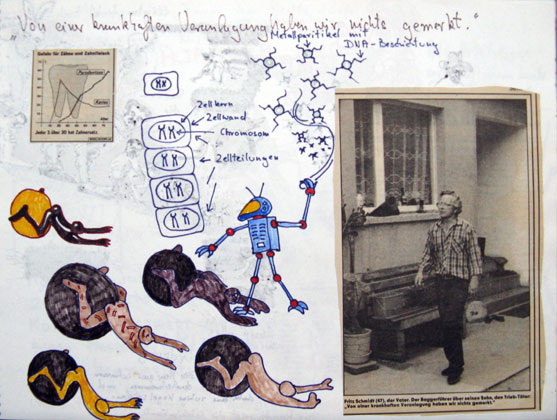 „Von einer krankhaften Veranlagung haben wir nichts gemerkt."
Metallpartikel mit
DNA-Beschichtung
Gefahr für Zähne und Zahnfleisch
Parodontose
Karies
Alter
Jeder 3. über 30 hat Zahnersatz
Zellkern
Zellwand
Chromosom
Zellteilungen
Fritz Schmidt (47), der Vater. Der Baggerführer über seinen Sohn, den Trieb-Täter:
„Von einer krankhaften Veranlagung haben wir nichts gemerkt."